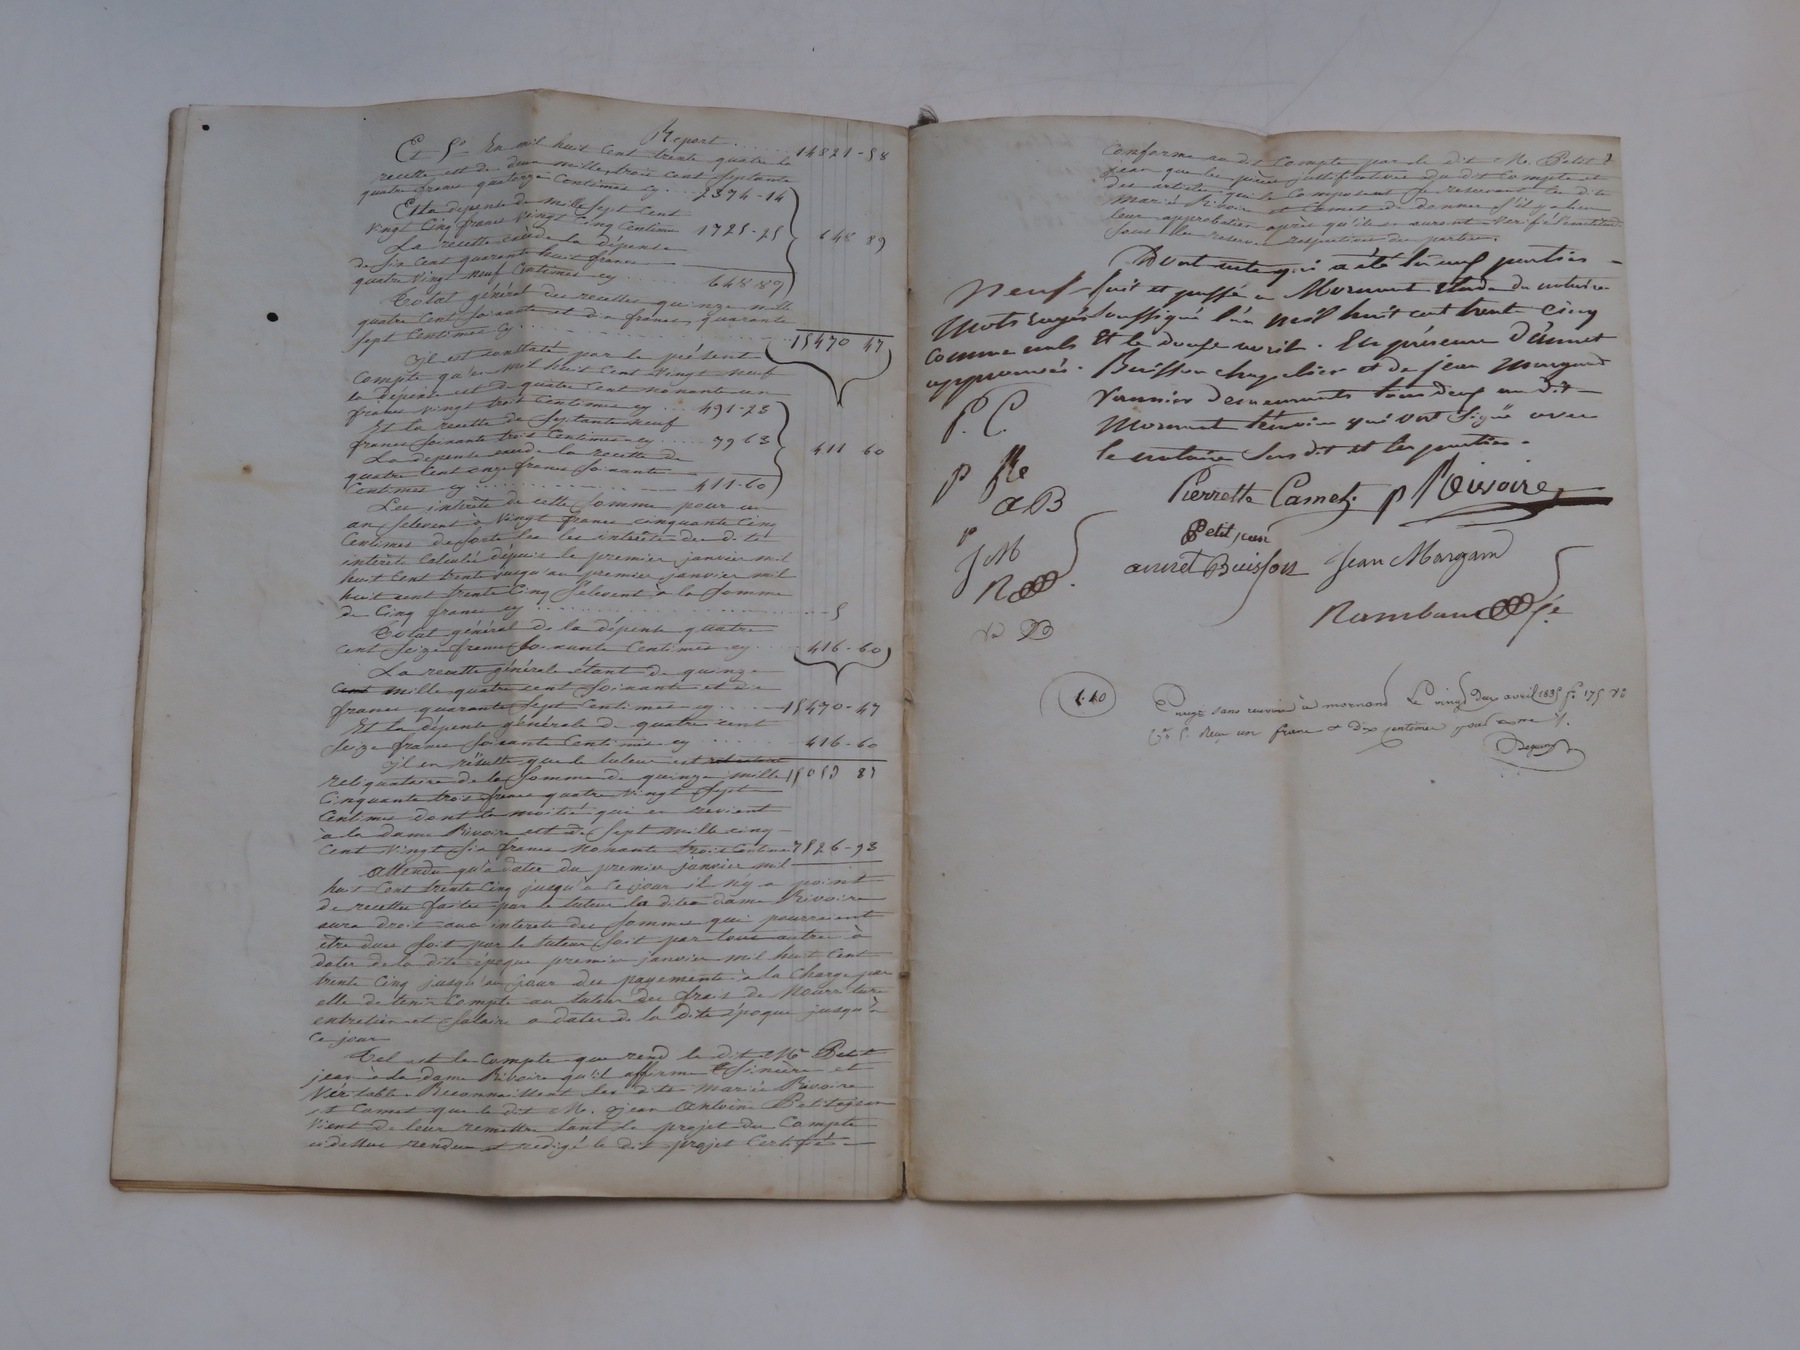 Report ...... 14821-58
Et 5° En mil huit cent trente quatre la
recette est de deux mille trois cent septante
quatre francs quatorze Centimes cy ... 2374-14
Et la dépense de mille sept Cent
vingt Cinq francs vingt Cinq Centimes 1725-25
La recette excède la dépense 648 89
de six cent quarante huit francs
quatre vingt neuf Centimes cy ...... 648-89
Total général des recettes quinze mille
quatre Cent soixante et dix francs, quarante
sept Centimes cy ...... 15470 47
Il est constaté par le présent
Compte qu'en mil huit Cent vingt neuf
la dépense est de quatre Cent nonante un
francs vingt trois Centimes cy ... 491-23
Et la recette de Septante neuf
francs soixante trois Centimes cy ..... 79 63
La dépense excède la recette de 411 60
quatre Cent onze francs soixante
Centimes cy ...... 411-60
Les intérêts de cette Somme pour un
an s'élèvent à vingt francs cinquante Cinq
Centimes de sorte que les intérêts des dits
intérêts Calculés depuis le premier janvier mil
huit Cent trente jusqu'au premier janvier mil
huit cent trente Cinq s'élèvent à la Somme
de Cinq francs cy ...... 5
Total général de la dépense quatre
cent Seize francs soixante Centimes cy .... 416-60
La recette générale étant de quinze
mille quatre cent soixante et dix
francs quarante sept Centimes cy ..... 15470-47
Et la dépense générale de quatre cent
seize francs soixante Centimes cy ..... 416-60
Il en résulte que le tuteur est
reliquataire de la Somme de quinze mille 15053 87
Cinquante trois francs quatre vingt sept
Centimes dont la moitié qui en revient
à la dame Rivoire est de sept mille cinq
Cent vingt six francs Nonante trois Centimes 7526-93
Attendu qu'à dater du premier janvier mil
huit Cent trente Cinq jusqu'à ce jour il n'y a point
de recettes faites par le tuteur la dite dame Rivoire
aura droit aux intérêts des sommes qui pourraient
être dues soit par le tuteur soit par tous autres à
dater de la dite époque premier janvier mil huit Cent
trente Cinq jusqu'au jour des payements à la Charge par
elle de tenir Compte au tuteur des frais de Nourriture
entretien et salaire a dater de la dite époque jusqu'à
Ce jour
Tel est le Compte que rend le dit Mr Petit
jean à la dame Rivoire qu'il affirme Sincère et
Véritable Reconnaissent les dits mariés Rivoire
et Camet que le dit M. jean Antoine Petitjean
vient de leur remettre tant le projet du Compte
ci dessus rendu et redigé le dit projet Certifié
Conforme au dit Compte par le dit M. Petit
jean que les pièces justificatives du dit Compte et
des articles qui le Composent se reservant les dits
mariés Rivoire et Camet de donner s'il y a lieu
leur approbation après qu'ils en auront vérifié l'exactitude
sous les reserves respectives des parties.
Dont acte qui a été lu aux parties
fait et passé a Mornant Etude du notaire
soussigné l'an mil huit cent trente cinq
Et le douze avril. En présence d'annet
Buisson chapelier et de jean Margand
vannier demeurants tous deux au dit
Mornant témoins qui ont signé avec
le notaire susdit et les parties.
Neuf
mots rayés
comme nuls
approuvés.
P. C.
P R
a B
P
J M
R
Pierrette Camet. P Rivoire
Petit jean
annet Buisson Jean Margand
Rambaud
1.10
Enregé sans renvoi à mornant Le vingt deux avril 1835 f° 175 V°
C. 5. Reçu un franc et dix centimes pour